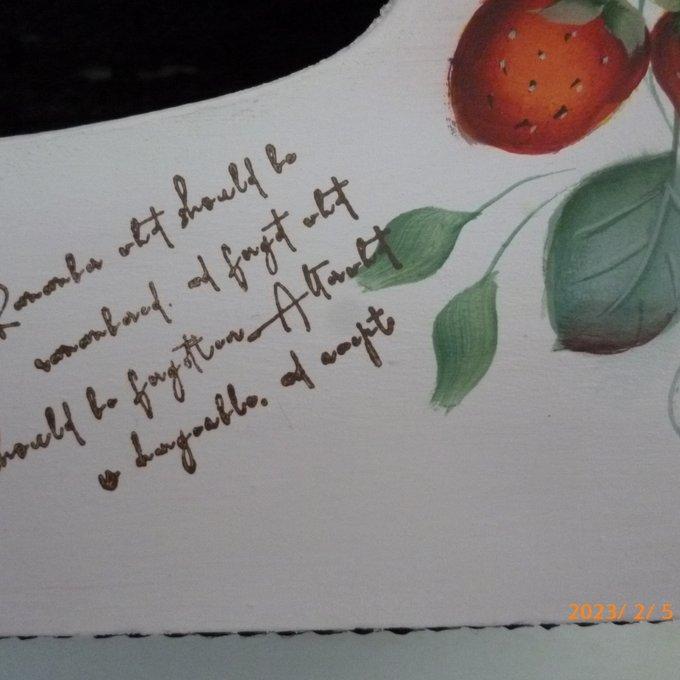 Remember what should be
remembered. and forget what
should be forgotten. Alter what
is changeable. and accept
2023/ 2/ 5